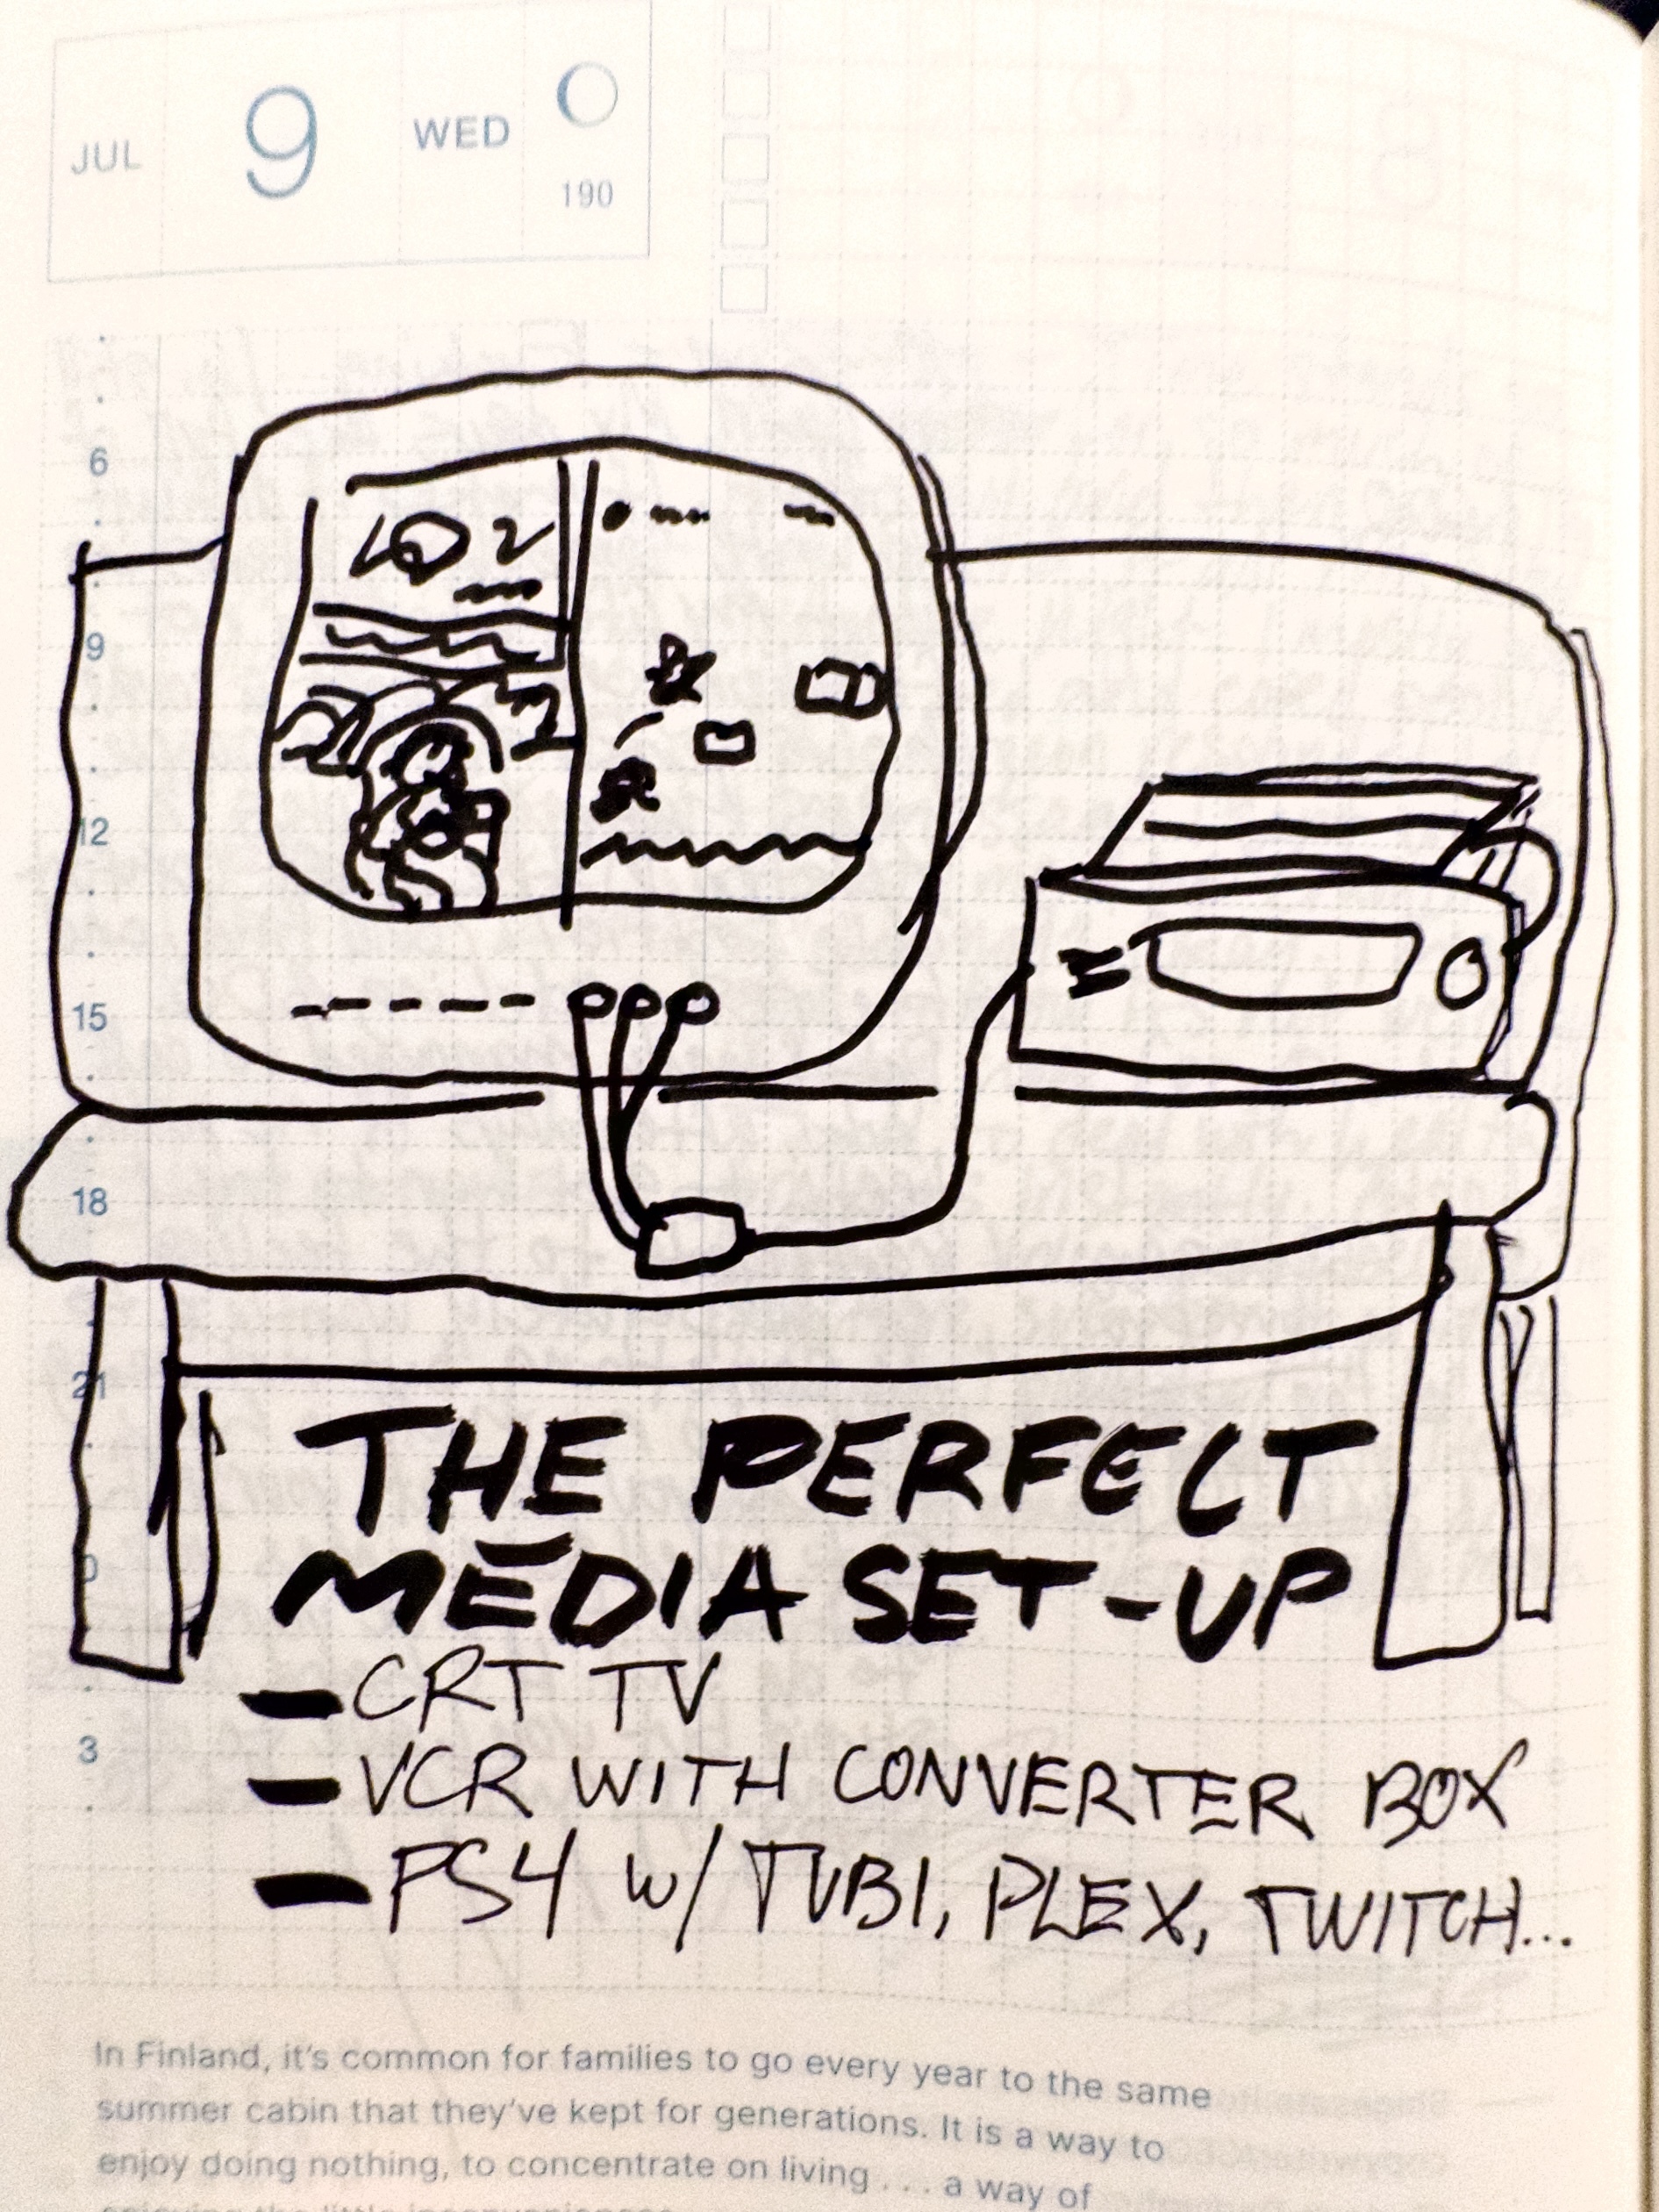 JUL 9 WED
190
6
9
12
15
18
21
0
3
THE PERFECT
MEDIA SET-UP
— CRT TV
— VCR WITH CONVERTER BOX
— PS4 W/ TUBI, PLEX, TWITCH...
In Finland, it's common for families to go every year to the same
summer cabin that they've kept for generations. It is a way to
enjoy doing nothing, to concentrate on living . . . a way of